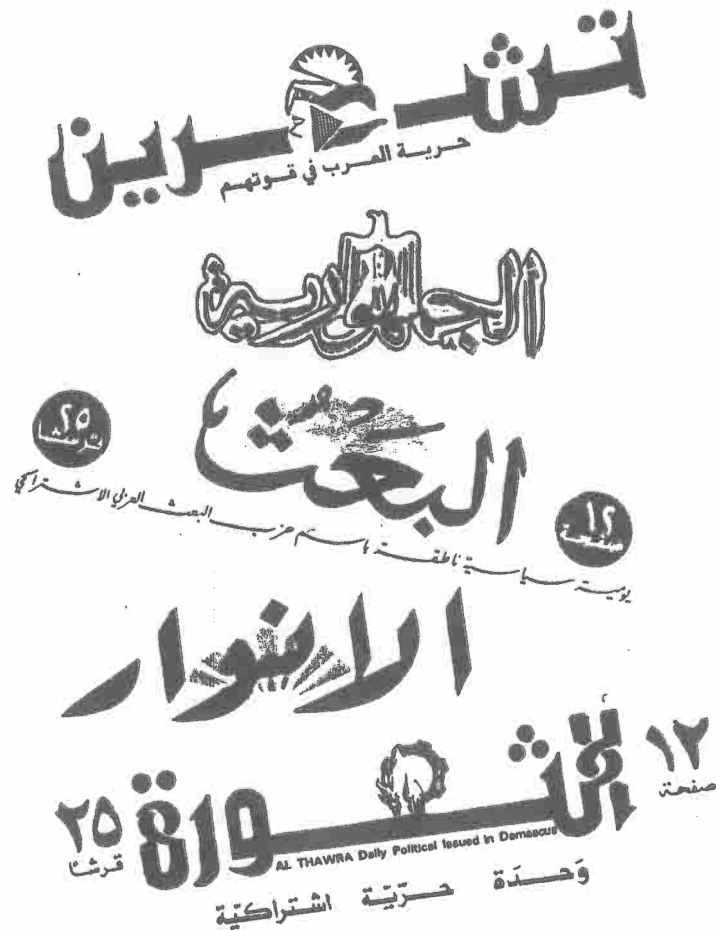 تشرين
حرية العرب في قوتهم
الجمهورية
البعث
٢٥
قرشا
١٢
صفحة
يومية سياسية ناطقة باسم حزب البعث العربي الاشتراكي
الانوار
الثورة
١٢
صفحة
٢٥
قرشا
AL THAWRA Daily Political Issued in Damascus
وَحدَة حرّيّة اشتراكيّة